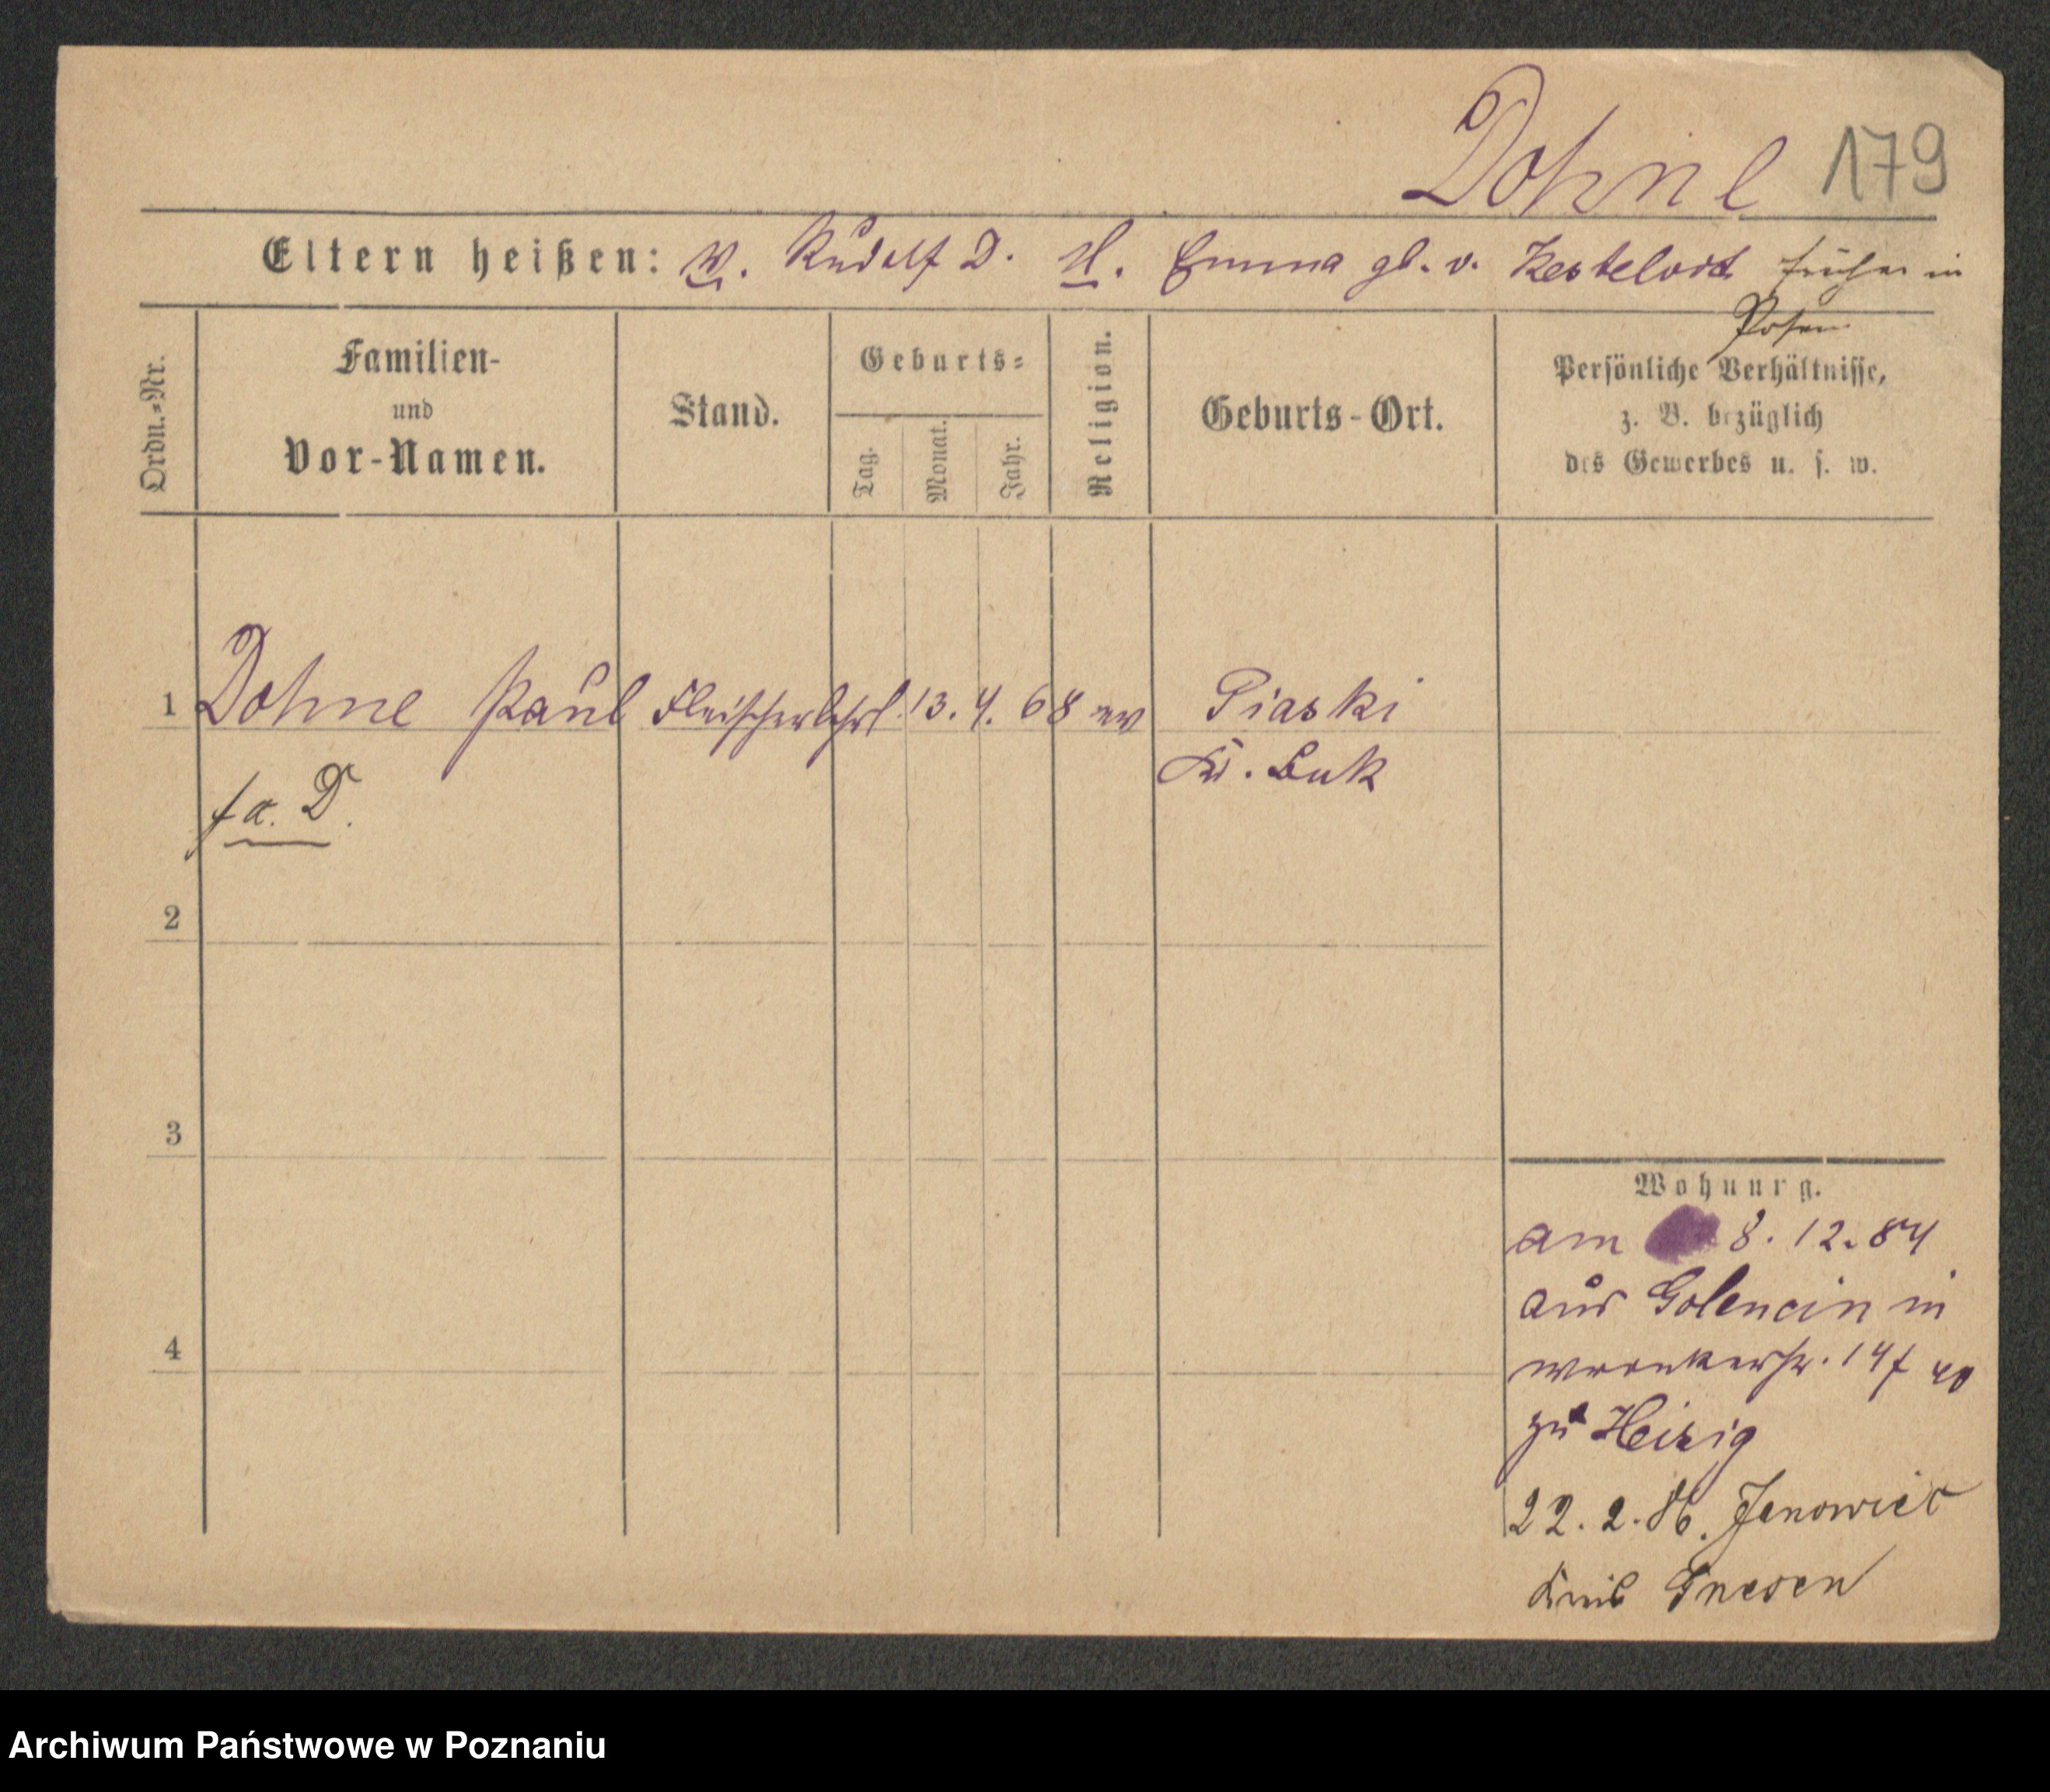 Dohne 179
Eltern heißen: V. Rudolf D. M. Emma gb. v. früher in
Posen
Ordn.-Nr.
Familien-
und
Vor-Namen.
Stand.
Geburts-
Tag.
Monat.
Jahr.
Religion.
Geburts-Ort.
Persönliche Verhältnisse,
z. B. bezüglich
des Gewerbes u. s. w.
1 Dohne Paul Fleischerlehrl. 13. 4. 68 ev Piaski
Kr. Buk
f a. D.
2
3
4
Wohnung.
am 8. 12. 84
aus Golencin in
Wronkerstr.
zu Heisig
22. 2. 86. Janowiec
Kreis Gnesen
Archiwum Państwowe w Poznaniu